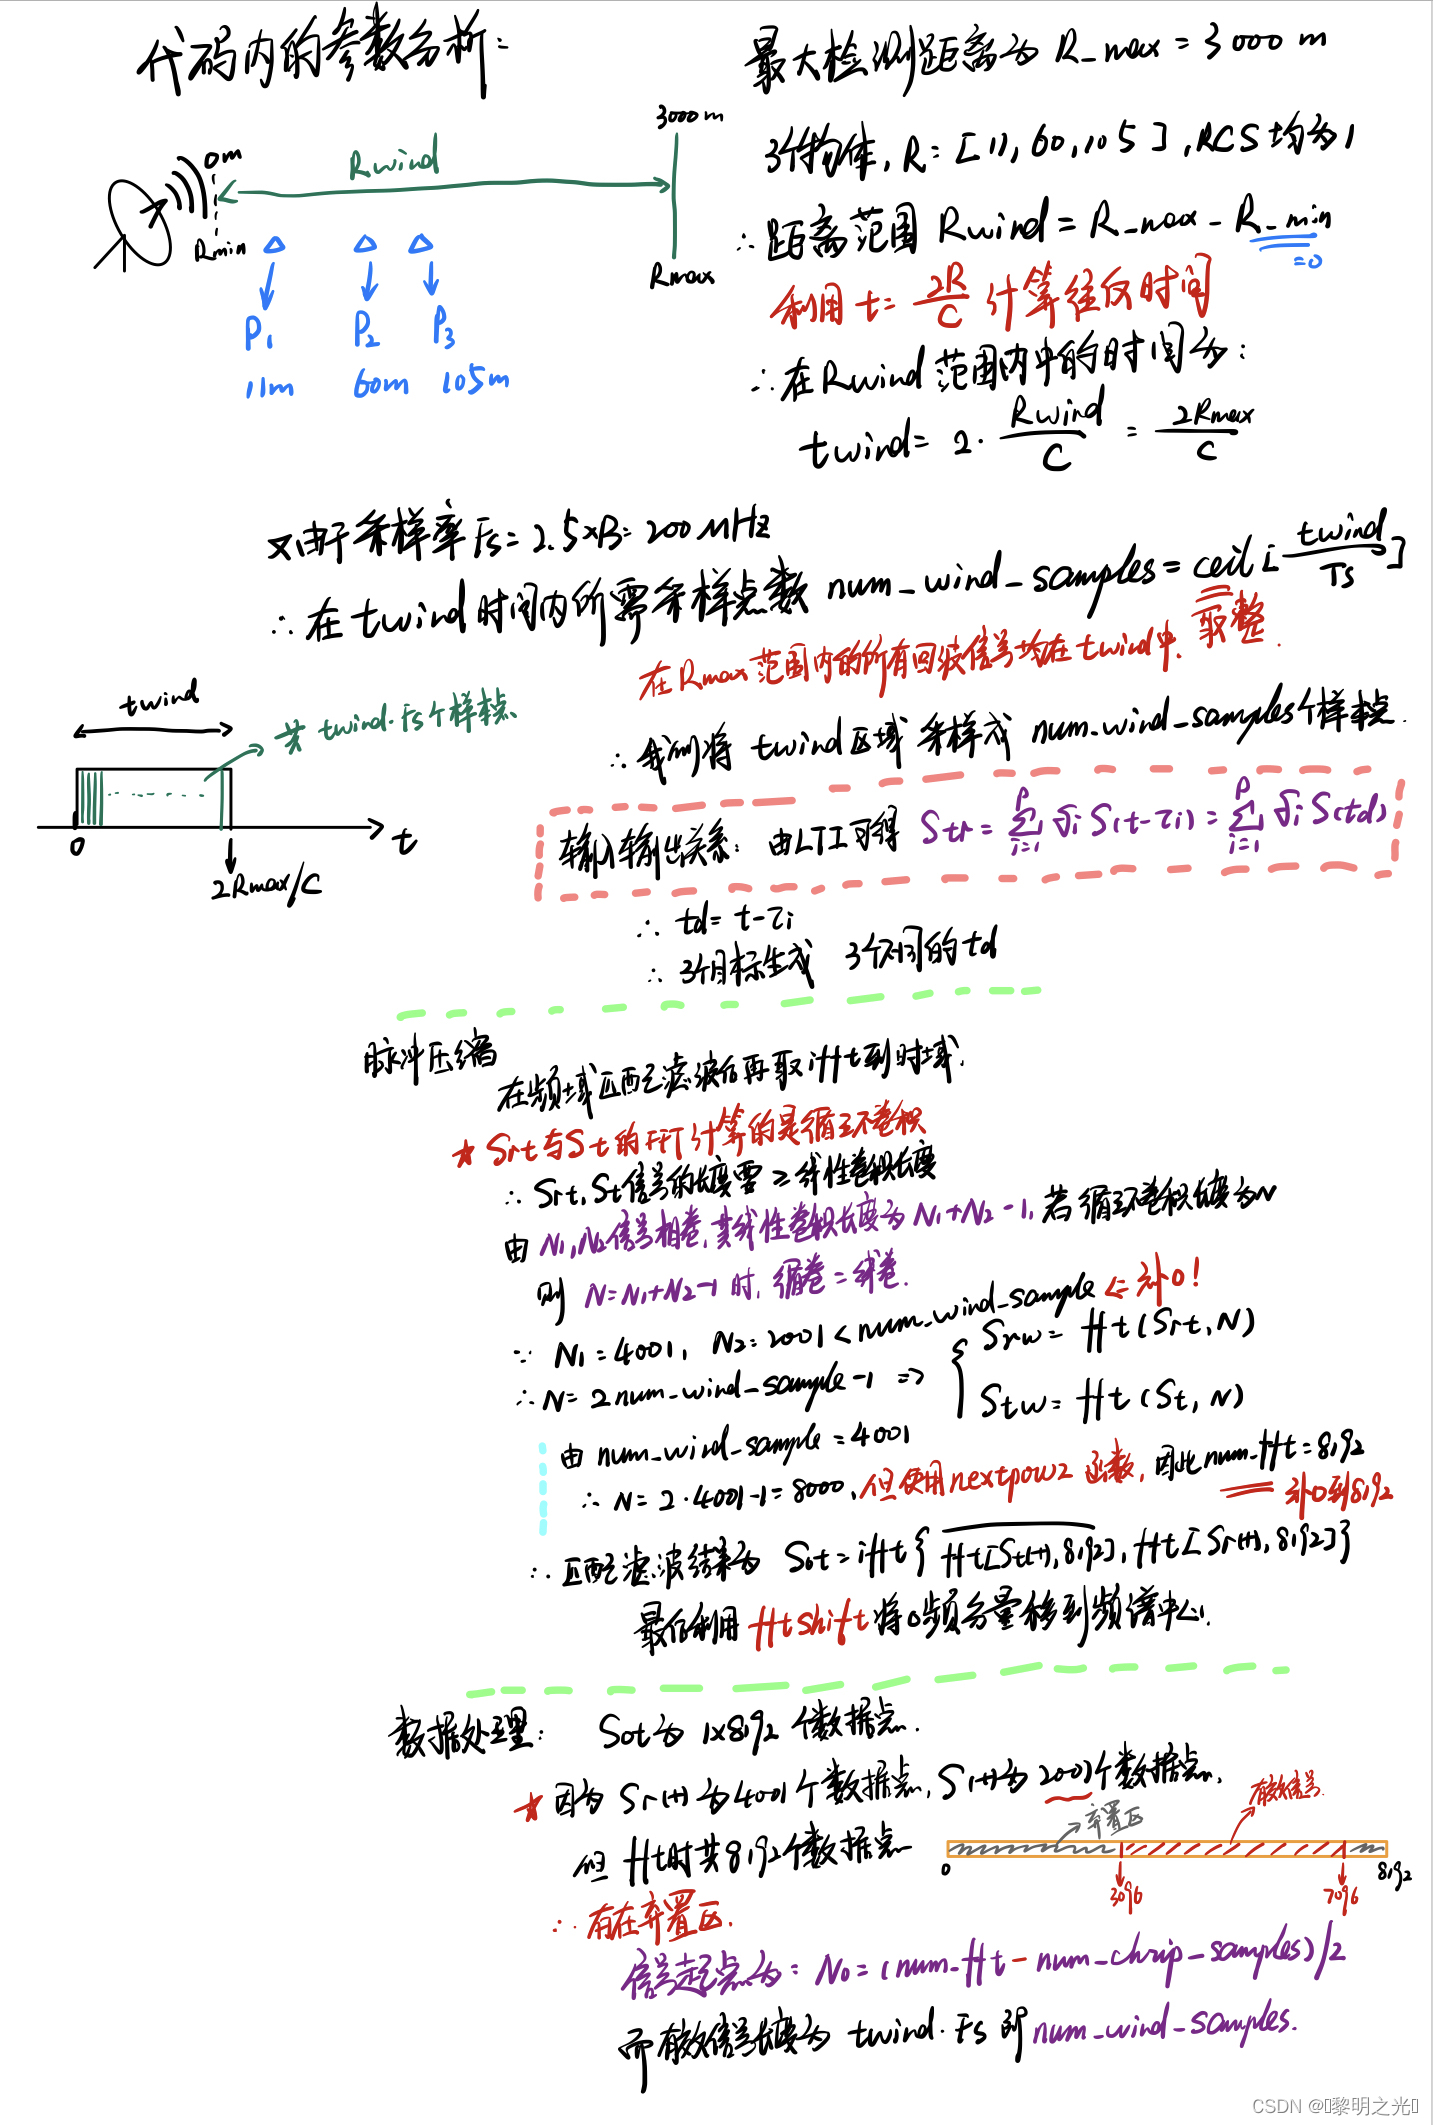 代码内的参数分析:
最大检测距离为 R_max = 3000 m
3个物体, R = [11, 60, 105], RCS均为1
∴ 距离范围 Rwind = R_max - R_min
=0
利用 t = 2R/C 计算往返时间
∴ 在Rwind范围内中的时间为:
twind = 2 · Rwind/C = 2Rmax/C
0m
Rmin
Rwind
3000m
Rmax
P1 P2 P3
11m 60m 105m
又由于采样率 Fs = 2.5×B = 200 MHz
∴ 在twind时间内所需采样点数 num_wind_samples = ceil[twind/Ts]
取整.
在Rmax范围内的所有回波信号均在twind中.
∴ 我们将 twind区域 采样成 num_wind_samples个样本点.
twind
共 twind·Fs个样本点.
0
t
2Rmax/C
输入输出关系: 由LTI可得 Str = Σ(i=1,P) σi S(t-τi) = Σ(i=1,P) σi S(td)
∴ td = t-τi
∴ 3个目标生成 3个不同的td
脉冲压缩
在频域匹配滤波后再取ifft到时域.
★ Srt与St的FFT计算的是循环卷积
∴ Srt, St信号的长度需 ≥ 线性卷积长度
由 N1,N2信号相卷,其线性卷积长度为 N1+N2-1, 若循环卷积长度为N
则 N=N1+N2-1 时, 循卷=线卷.
∵ N1=4001, N2=2001 < num_wind_sample ⇐ 补0!
∴ N = 2num_wind_sample-1 ⇒ { Srw = fft(Srt, N)
Stw = fft(St, N)
由 num_wind_sample = 4001
∴ N = 2·4001-1 = 8000, 但使用nextpow2 函数, 因此num_fft = 8192
补0到8192
∴ 匹配滤波结果为 Sot = ifft{ fft[St(t),8192], fft[Sr(t),8192]}
最后利用 fftshift 将0频分量移到频谱中心.
数据处理: Sot为 1×8192 个数据点.
★ 因为 Sr(t)为4001个数据点, S(t)为2001个数据点,
但 fft时共8192个数据点
弃置区
有效信号.
0
3096
7096
8192
∴ 存在弃置区.
信号起点为: N0 = (num_fft - num_chrip_samples)/2
而有效信号长度为 twind·Fs 即num_wind_samples.
CSDN @黎明之光